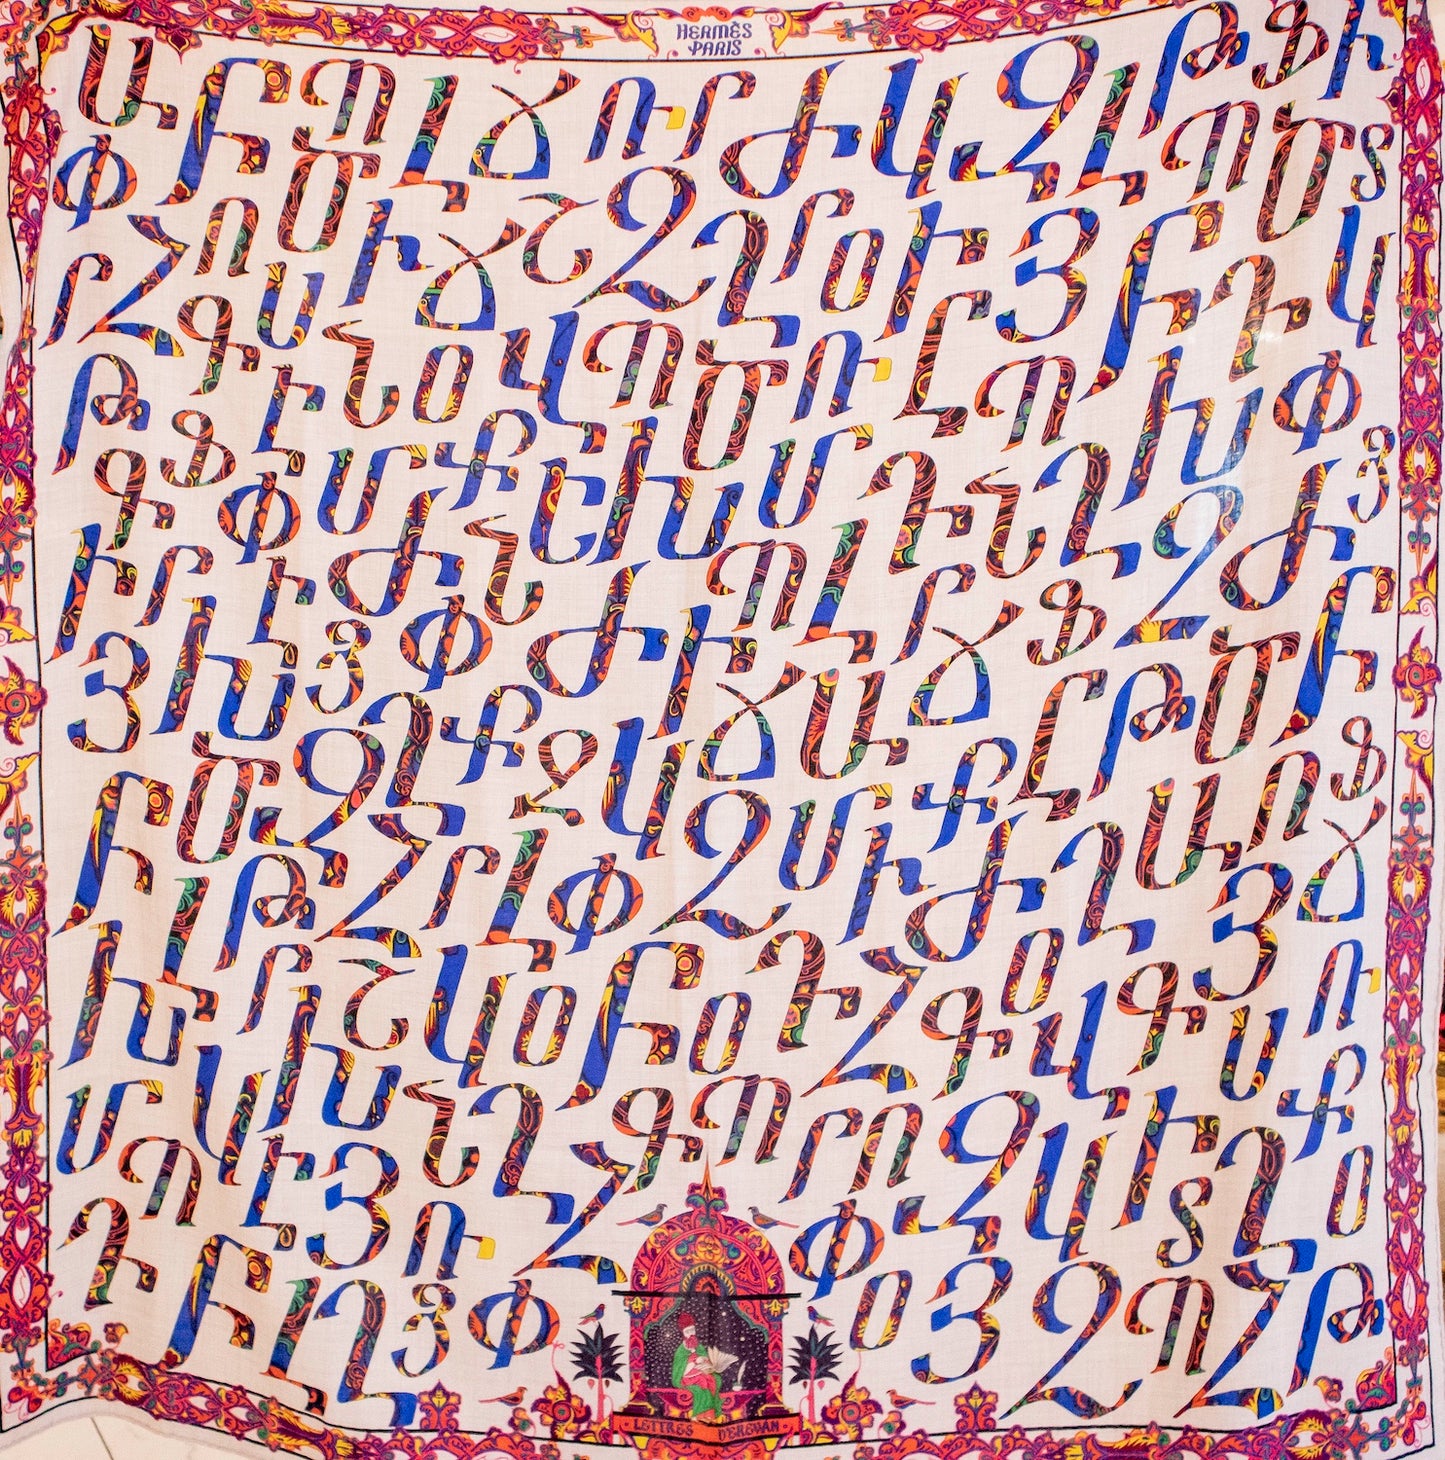 HERMÈS
PARIS
Ա Բ Պ Լ Ճ Ռ Ր Ժ Կ Զ Լ Թ Ֆ Ի
Փ Ո Ծ Ի Ճ Շ Զ Ղ Ր Օ Ի Յ Բ Պ Ծ Տ
Ր Հ Գ Ս Ն Օ Վ Պ Ծ Ռ Ը Պ Ի Դ Կ
Թ Ֆ Է Մ Ք Ե Խ Մ Դ Ն Ղ Խ Փ
Գ Փ Ժ Ն Պ Լ Ր Ֆ Զ Ժ Յ
Ի Ր Է Յ Փ Ժ Ի Ճ Ա Ճ Ը Թ Ծ Բ
Յ Խ Զ Ղ Ք Ջ Կ Զ Մ Ք Ղ Ա Ո Ֆ
Բ Ծ Թ Հ Ր Լ Փ Ի Ժ Յ Ճ
Խ Լ Ր Շ Կ Օ Բ Օ Դ Հ Գ Օ Վ Գ Ս Ռ
Մ Վ Խ Ն Ղ Գ Պ Ր Ո Զ Կ Ի Ղ Ք
Դ Պ Է Յ Ռ Հ Փ Տ Օ
Բ Լ Ղ Յ Փ Օ Յ Զ Պ Հ Թ
LETTRES D'EREVAN